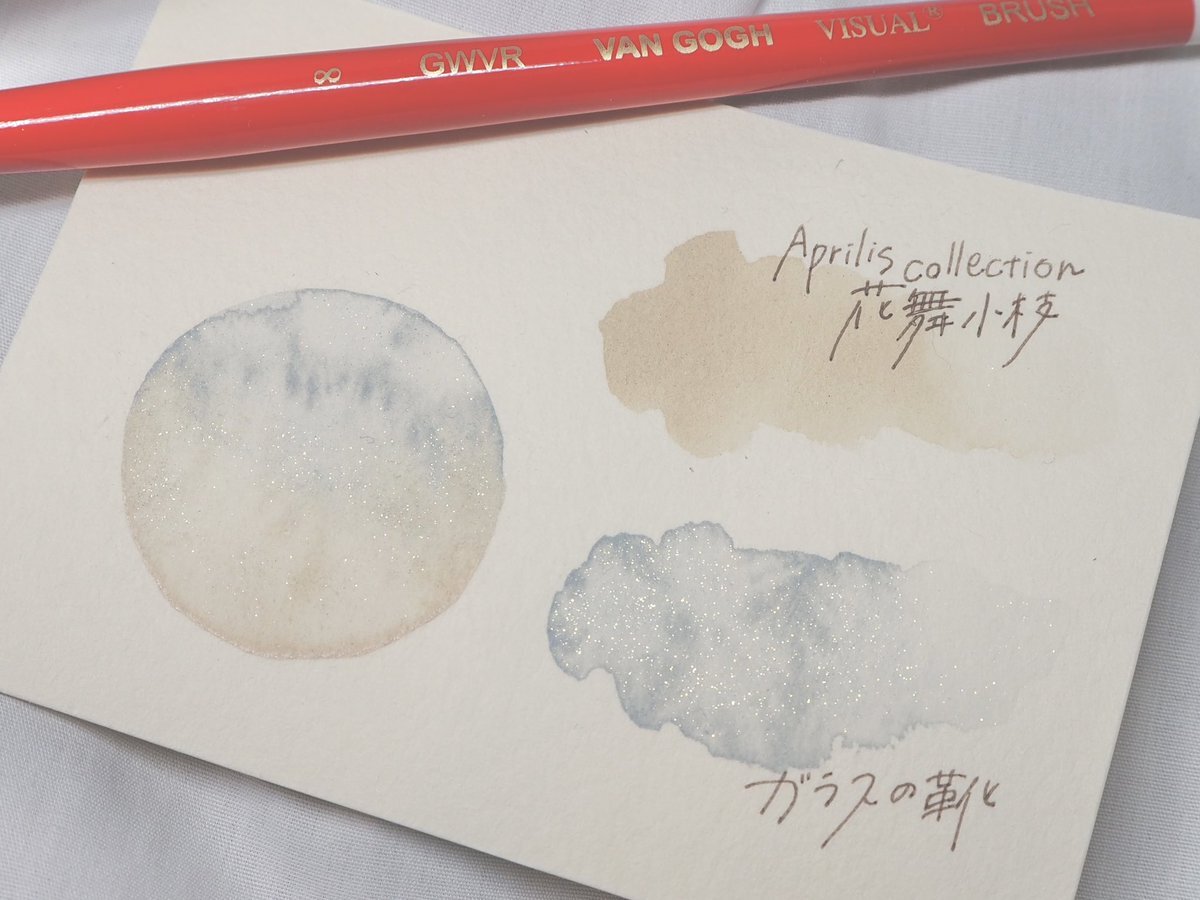 8 GWVR VAN GOGH VISUAL® BRUSH
Aprilis collection
花舞小枝
ガラスの靴